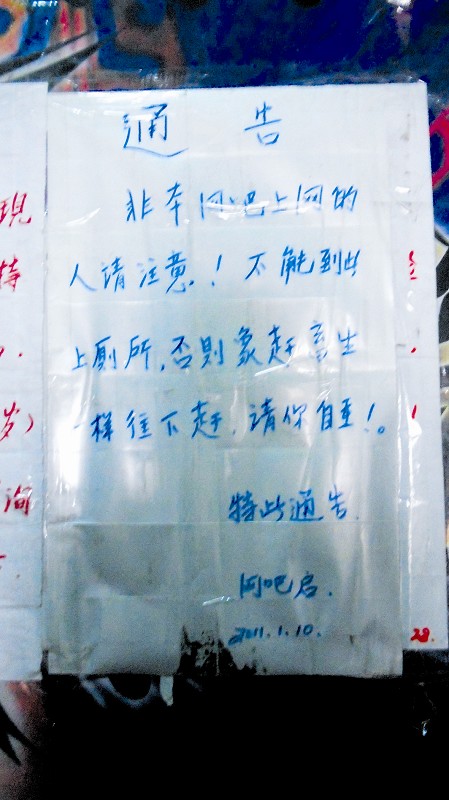 通告
非本网吧上网的
人请注意！不能到此
上厕所，否则象赶畜生
一样往下赶，请你自重！。
特此通告
网吧启.
2011.1.10.
現
特
岁）
询
28.